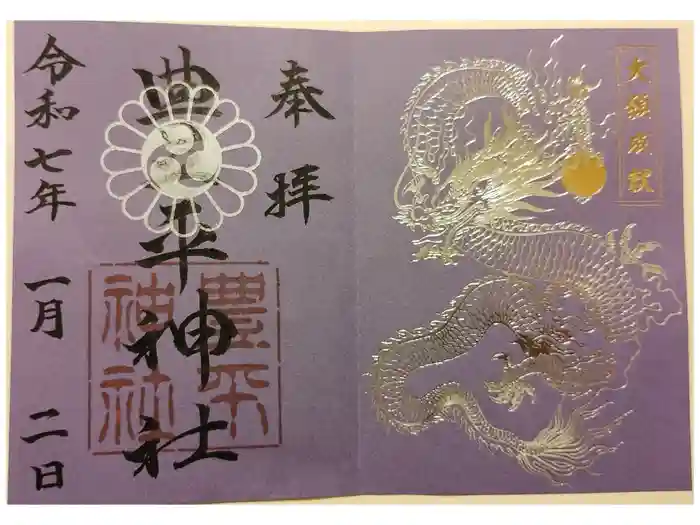 大願成就
奉拝
豊平神社
豊平
神社
令和七年
一月
二日